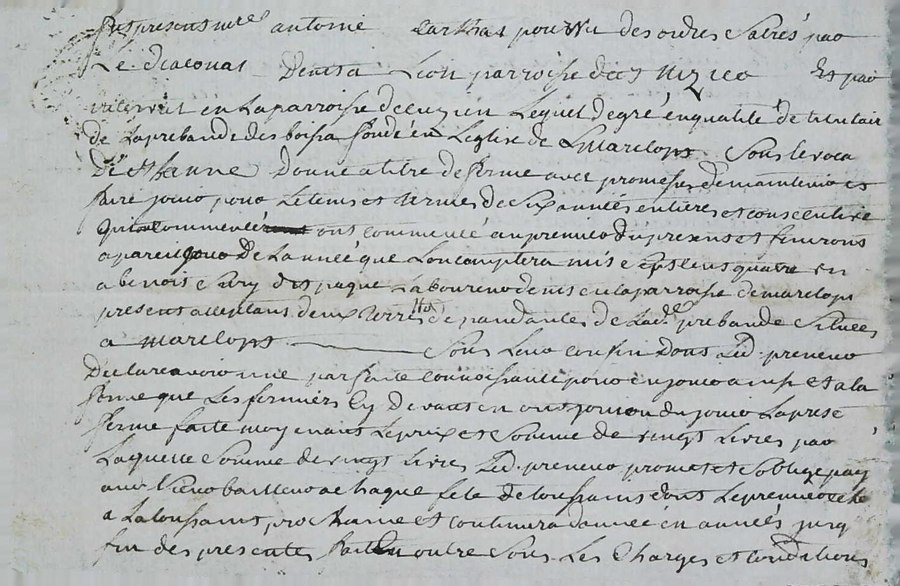 fut present mre antoine Carthat pourvu des ordres Sacrés par
Le diaconat Dernta Leon parroisse de St
en La parroisse de Lequel de gré en qualité de titulair
de La prebande des boissa fondé en L'eglise de Marclops Sous le voca
De Ste Anne Donne a titre de ferme avec promesse de maintenir et
faire jouir pour Le tems et terme de Six années entieres et consecutive
qui ont commencé au premier du present et finiront
a pareil jour de L'année que L'on comptera mil Sept cens quatre en
a benoist paque Laboureur demt en La parroisse de marclops
present acceptant deux terres dependantes de Lad. prebande Situées
a marclops Sous Leur confin dont Led. preneur
Declare avoir une parfaite connoissance pour en jouir ainsi et a la
forme que Les fermiers Cy Devant en ont joui ou du jouir La prest
ferme faite moyenant Le prix et Somme de vingt Livres par
Laquelle Somme de vingt Livres Led. preneur promet et S'oblige pay
aud. Sieur bailleur a chaque fete de toussaint dont Le premier
a La toussaint prochaine et continuera d'année en années jusq
fin des presentes fait En outre Sous Les Charges et Conditions